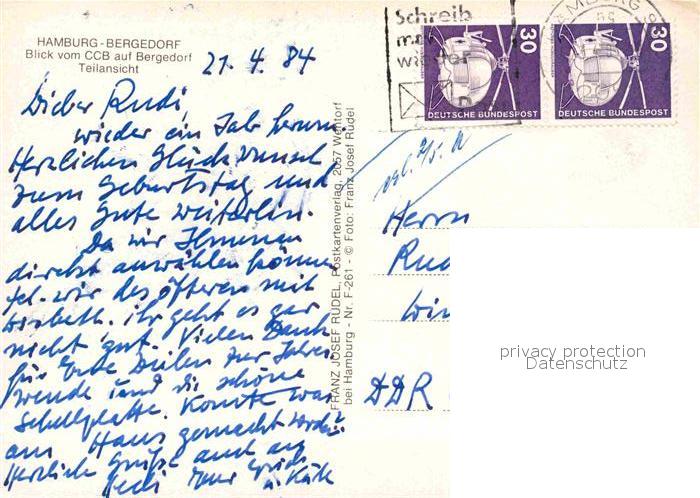 HAMBURG-BERGEDORF
Blick vom CCB auf Bergedorf
Teilansicht
21. 4. 84
Lieber Rudi
wieder ein Jahr herum.
Herzlichen Glückwunsch
zum Geburtstag und
alles Gute weiterhin.
Da wir Ihnen
direkt anwählen können
tel. wir des öfteren mit
ihr geht es gar
nicht gut. Vielen Dank
für Eure Zeilen zur Jahres
wende und die schöne
Schallplatte. Konnte was
am Haus gemacht werden
Herzliche Grüße auch an
Eure
u. Käte
FRANZ JOSEF RÜDEL, Postkartenverlag, 2057 Wentorf
bei Hamburg - Nr. F-261 - © Foto: Franz Josef Rüdel
Schreib
mal
wieder
30
DEUTSCHE BUNDESPOST
30
DEUTSCHE BUNDESPOST
HAMBURG
Herrn
Rud
Win
DDR
privacy protection
Datenschutz